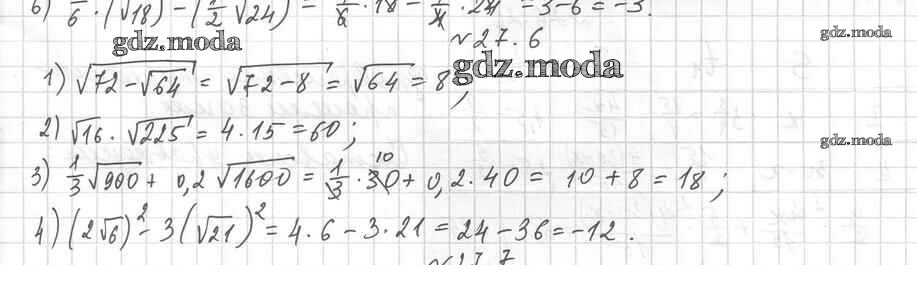 6) 1/6 · (√18)² − (1/2 √24)² = 1/6 · 18 − 1/4 · 24 = 3 − 6 = −3.
gdz.moda
№27.6
gdz.moda
gdz.moda
1) √(72 − √64) = √(72 − 8) = √64 = 8;
2) √16 · √225 = 4 · 15 = 60;
gdz.moda
3) 1/3 √900 + 0,2 √1600 = 1/3 · 30 + 0,2 · 40 = 10 + 8 = 18;
10
4) (2√6)² − 3(√21)² = 4·6 − 3·21 = 24 − 36 = −12.
gdz.moda
№27.7